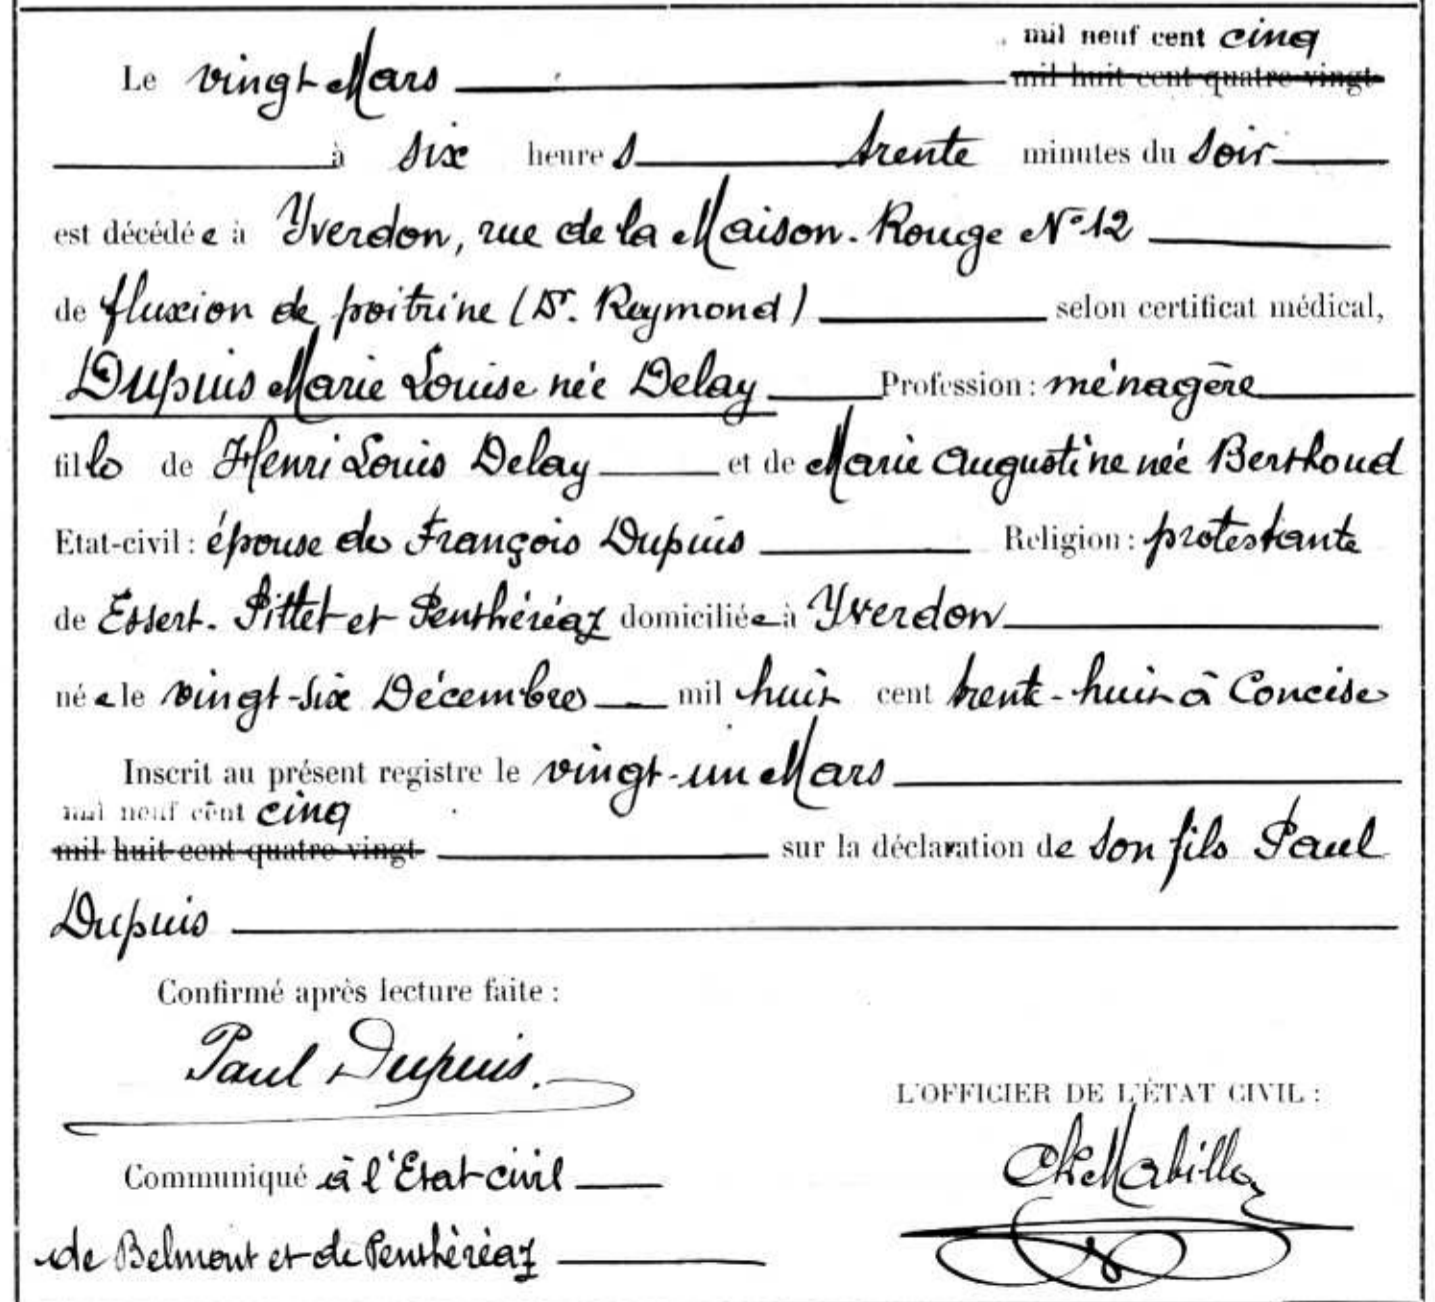 mil neuf cent cinq
Le vingt Mars mil huit cent quatre-vingt
à six heures trente minutes du soir
est décédée à Yverdon, rue de la Maison-Rouge N° 12
de fluxion de poitrine (Dr. Reymond) selon certificat médical,
Dupuis Marie Louise née Delay Profession : ménagère
fille de Henri Louis Delay et de Marie Augustine née Berthoud
Etat-civil : épouse de François Dupuis Religion : protestante
de Essert-Pittet et Penthéréaz domiciliée à Yverdon
née le vingt-six Décembre mil huit cent trente-huit à Concise
Inscrit au présent registre le vingt-un Mars
mil neuf cent cinq
mil huit cent quatre-vingt sur la déclaration de son fils Paul
Dupuis
Confirmé après lecture faite :
Paul Dupuis.
L'OFFICIER DE L'ÉTAT CIVIL :
Communiqué à l'Etat-civil
de Belmont et de Penthéréaz